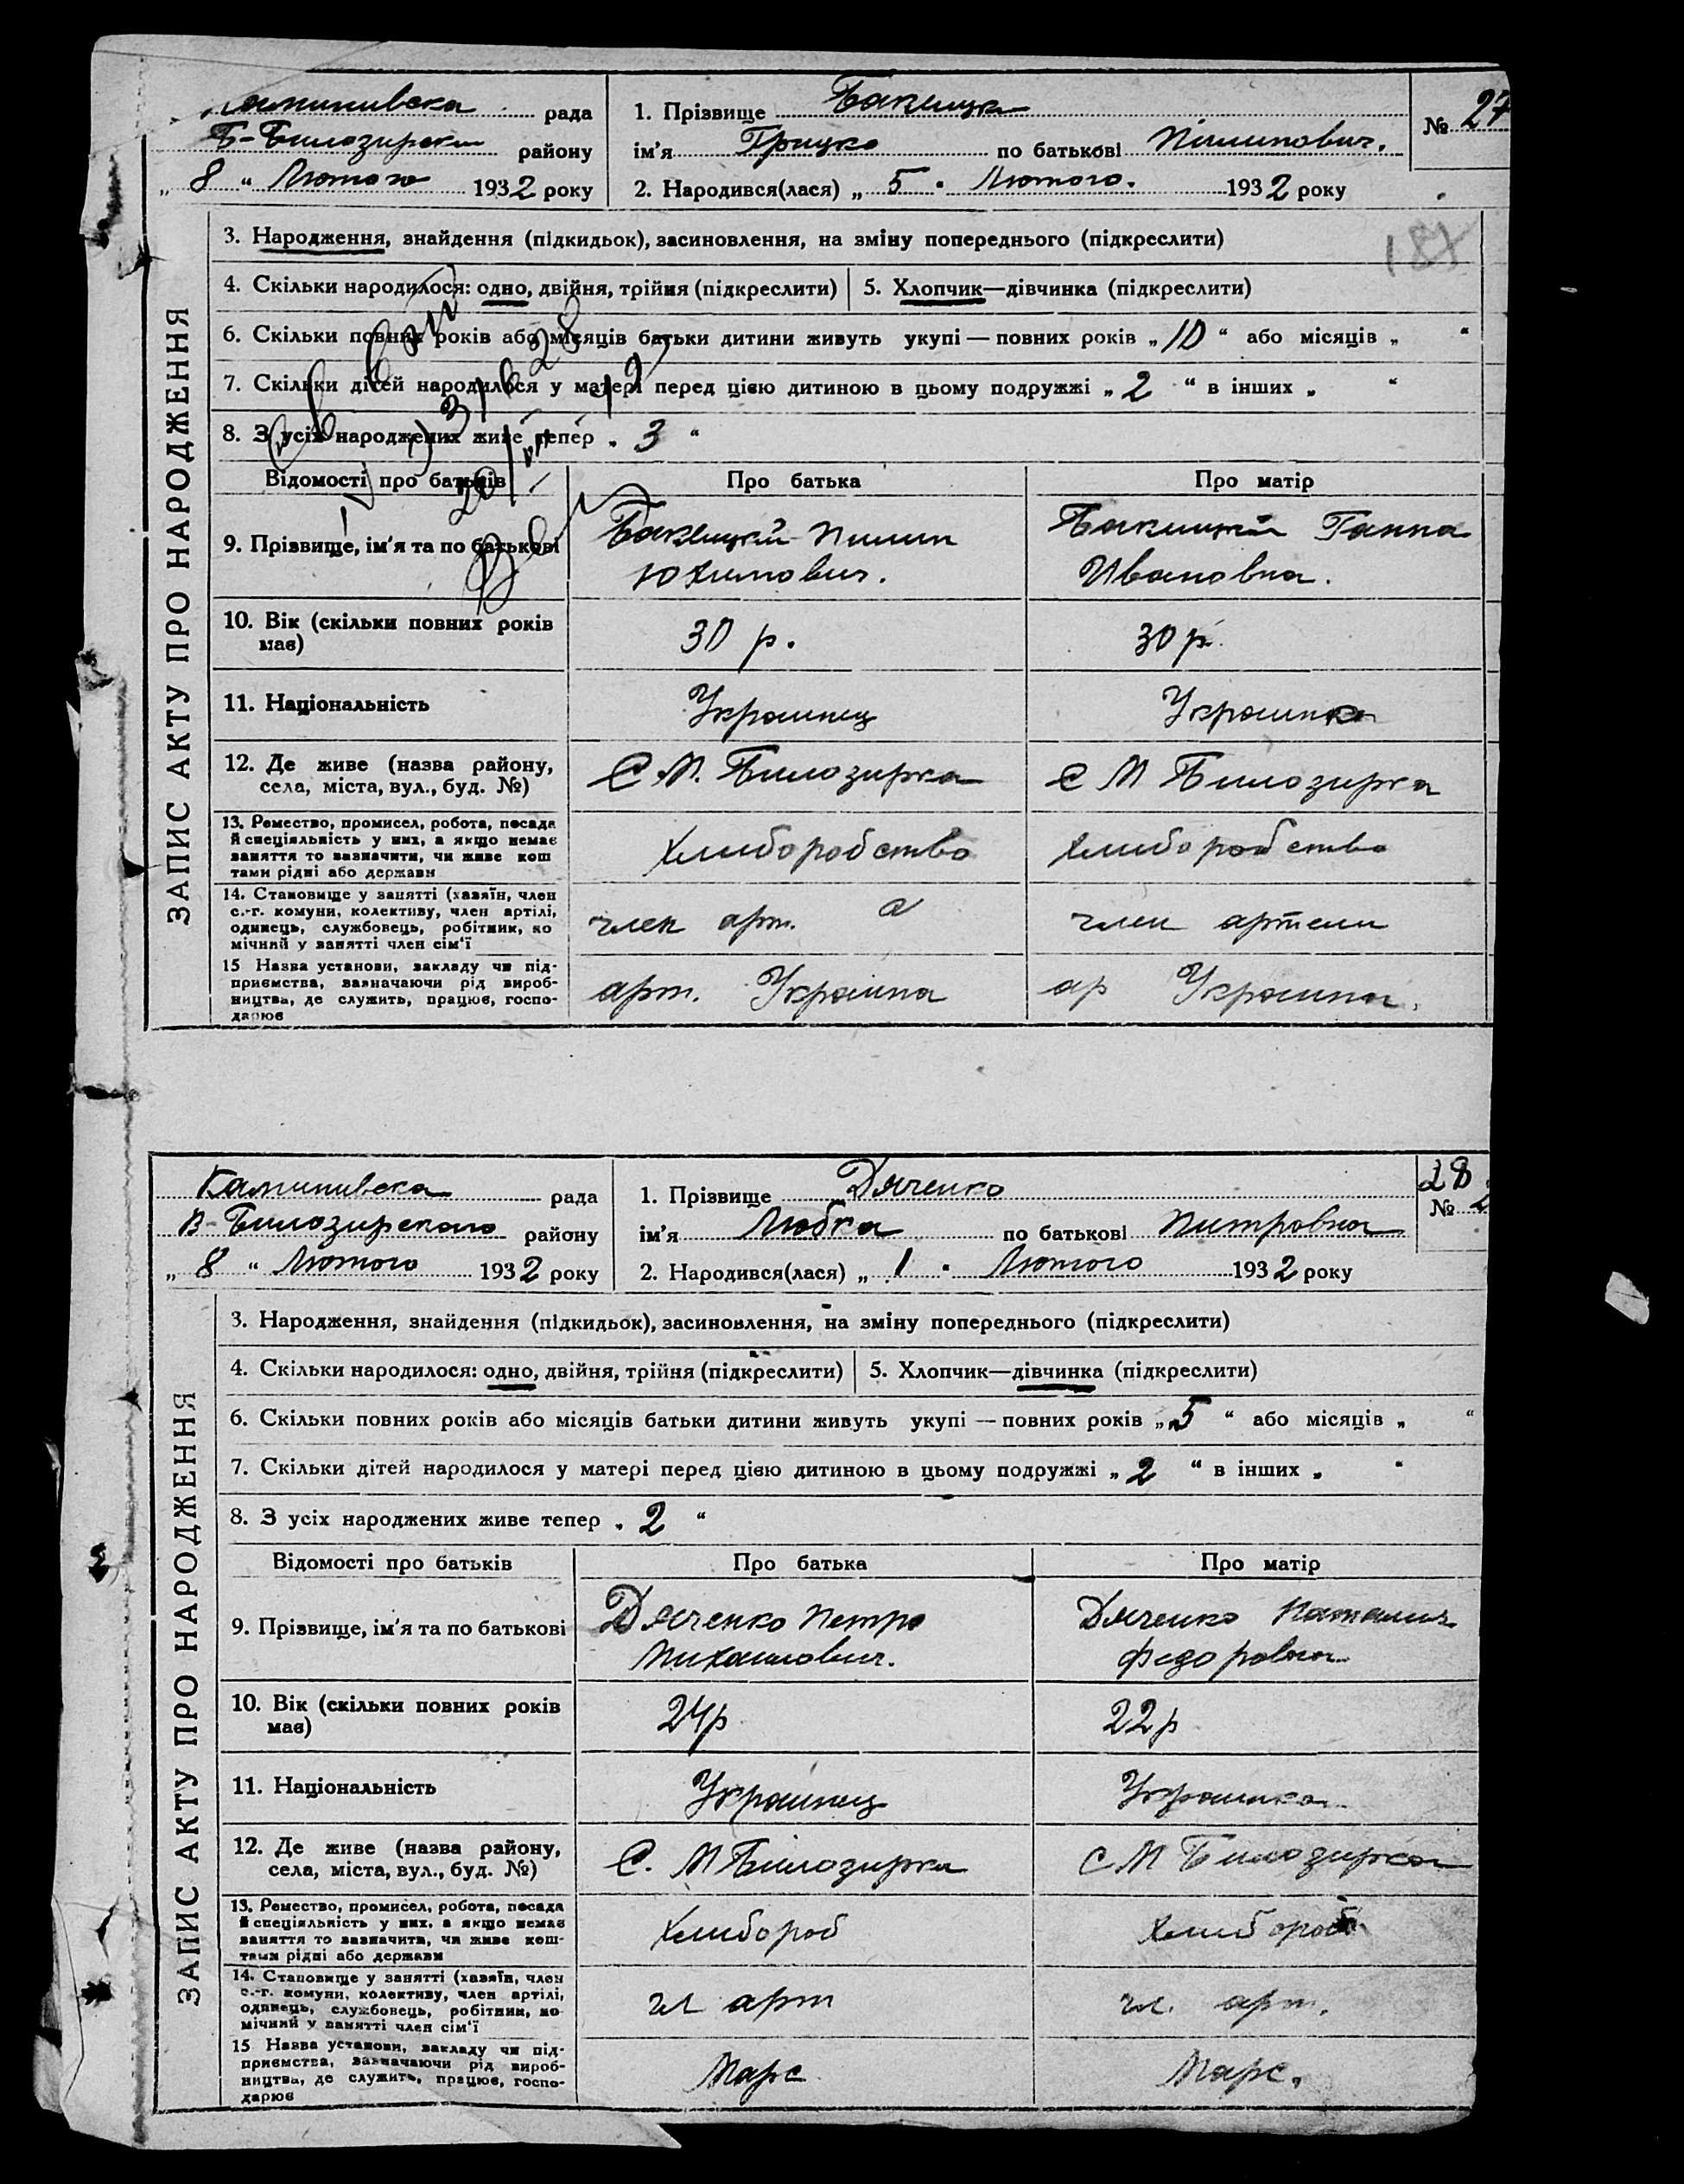 рада
Б-Билозирски району
„ 8 “ Лютого 1932 року
1. Прізвище
ім'я Грицко по батькові Пилипович.
2. Народився(лася) „ 5 “ Лютого. 1932 року
№ 27
187
ЗАПИС АКТУ ПРО НАРОДЖЕННЯ
3. Народження, знайдення (підкидьок), засиновлення, на зміну попереднього (підкреслити)
4. Скільки народилося: одно, двійня, трійня (підкреслити) 5. Хлопчик—дівчинка (підкреслити)
6. Скільки повних років або місяців батьки дитини живуть укупі — повних років „ 10 “ або місяців „ “
7. Скільки дітей народилося у матері перед цією дитиною в цьому подружжі „ 2 “ в інших „ “
8. З усіх народжених живе тепер „ 3 “
Відомості про батьків Про батька Про матір
9. Прізвище, ім'я та по батькові
Пилип
Юхимович.
Ганна
Ивановна.
10. Вік (скільки повних років
має)
30 р. 30 р.
11. Національність Украинец Украинка
12. Де живе (назва району,
села, міста, вул., буд. №)
С. М. Билозирка С М Билозирка
13. Ремество, промисел, робота, посада
й спеціяльність у них, а якщо немає
заняття то зазначити, чи живе кош
тами рідні або держави
Хлиборобство Хлиборобство
14. Становище у занятті (хазяїн, член
с.-г. комуни, колективу, член артілі,
одинець, службовець, робітник, по
мічний у занятті член сім'ї
член арт. член артели
15 Назва установи, закладу чи під-
приємства, зазначаючи рід вироб-
ництва, де служить, працює, госпо-
дарює
арт. Украина ар Украина.
Калинивска рада
В-Билозирского району
„ 8 “ Лютого 1932 року
1. Прізвище Дяченко
ім'я Любка по батькові Питровна
2. Народився(лася) „ 1 “ Лютого 1932 року
28
№ 2
ЗАПИС АКТУ ПРО НАРОДЖЕННЯ
3. Народження, знайдення (підкидьок), засиновлення, на зміну попереднього (підкреслити)
4. Скільки народилося: одно, двійня, трійня (підкреслити) 5. Хлопчик—дівчинка (підкреслити)
6. Скільки повних років або місяців батьки дитини живуть укупі — повних років „ 5 “ або місяців „ “
7. Скільки дітей народилося у матері перед цією дитиною в цьому подружжі „ 2 “ в інших „ “
8. З усіх народжених живе тепер „ 2 “
Відомості про батьків Про батька Про матір
9. Прізвище, ім'я та по батькові
Дяченко Петро
Михаилович.
Дяченко Наталия
Федоровна
10. Вік (скільки повних років
має)
24р 22р
11. Національність Украинец Украинка
12. Де живе (назва району,
села, міста, вул., буд. №)
С. М Билозирка С М Билозирка
13. Ремество, промисел, робота, посада
й спеціяльність у них, а якщо немає
заняття то зазначити, чи живе кош-
тами рідні або держави
Хлибороб Хлибороб
14. Становище у занятті (хазяїн, член
с.-г. комуни, колективу, член артілі,
одинець, службовець, робітник, по
мічний у занятті член сім'ї
чл арт чл. арт.
15 Назва установи, закладу чи під-
приємства, зазначаючи рід вироб-
ництва, де служить, працює, госпо-
дарює
Марс Марс.